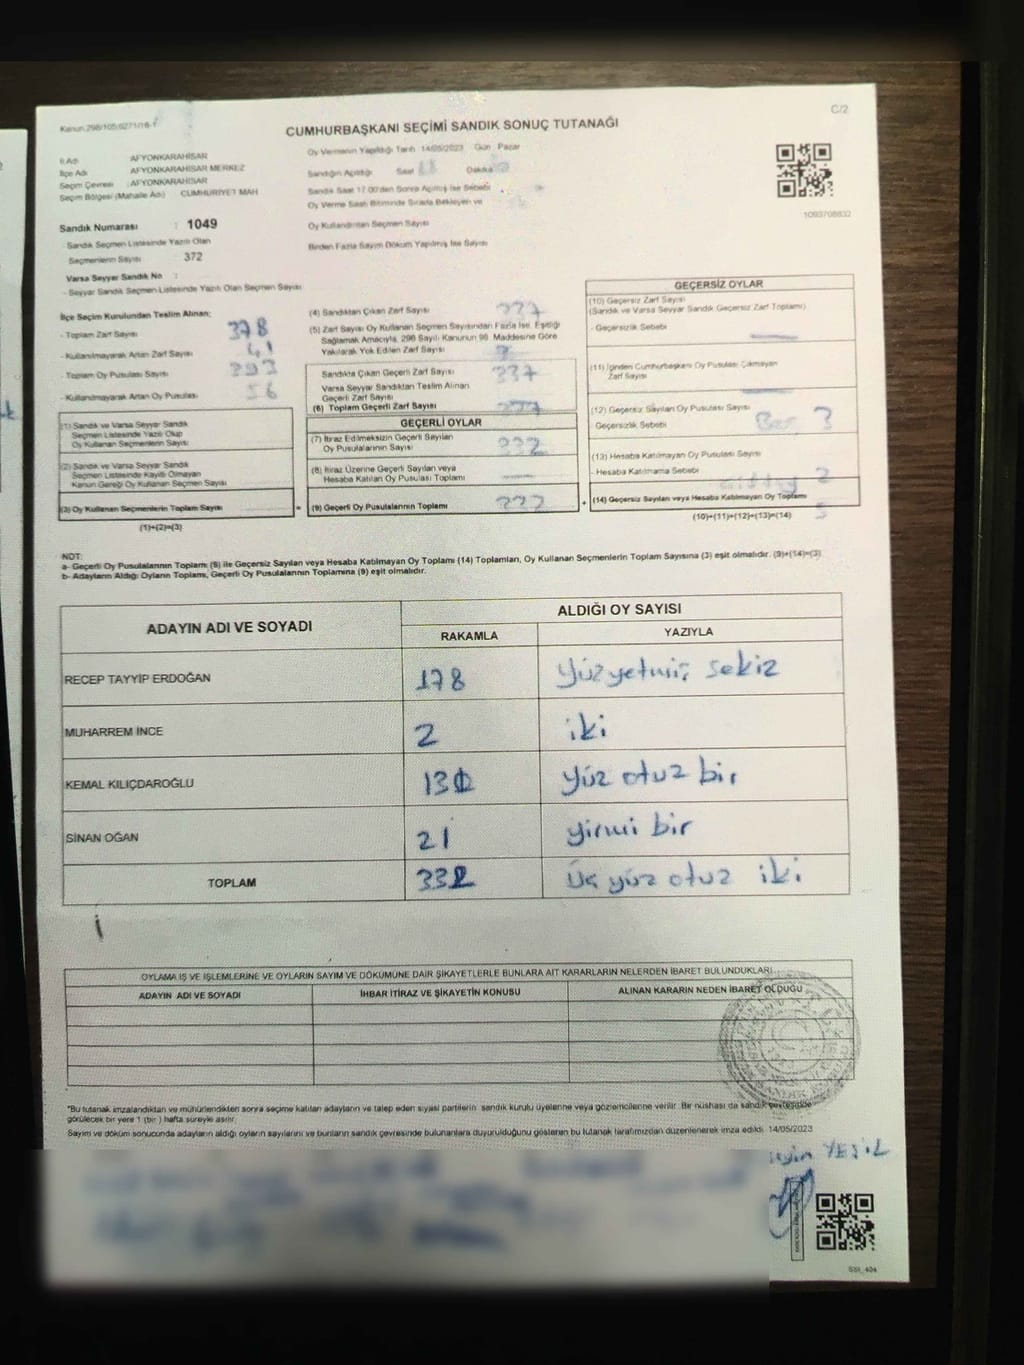 C/2
Kanun:298/105;6271/16-1
CUMHURBAŞKANI SEÇİMİ SANDIK SONUÇ TUTANAĞI
İl Adı AFYONKARAHİSAR
İlçe Adı AFYONKARAHİSAR MERKEZ
Seçim Çevresi : AFYONKARAHİSAR
Seçim Bölgesi (Mahalle Adı) CUMHURİYET MAH
Oy Vermenin Yapıldığı Tarih 14/05/2023 Gün Pazar
Sandığın Açıldığı Saat Dakika
Sandık Saat 17.00'den Sonra Açılmış İse Sebebi
Oy Verme Saati Bitiminde Sırada Bekleyen ve
Oy Kullandırılan Seçmen Sayısı
Birden Fazla Sayım Döküm Yapılmış İse Sayısı
1093708832
Sandık Numarası : 1049
Sandık Seçmen Listesinde Yazılı Olan
Seçmenlerin Sayısı 372
Varsa Seyyar Sandık No :
- Seyyar Sandık Seçmen Listesinde Yazılı Olan Seçmen Sayısı
İlçe Seçim Kurulundan Teslim Alınan;
- Toplam Zarf Sayısı 378
- Kullanılmayarak Artan Zarf Sayısı 41
- Toplam Oy Pusulası Sayısı 393
- Kullanılmayarak Artan Oy Pusulası 56
(1) Sandık ve Varsa Seyyar Sandık
Seçmen Listesinde Yazılı Olup
Oy Kullanan Seçmenlerin Sayısı
(2) Sandık ve Varsa Seyyar Sandık
Seçmen Listesinde Kayıtlı Olmayan
Kanun Gereği Oy Kullanan Seçmen Sayısı
(3) Oy Kullanan Seçmenlerin Toplam Sayısı
(1)+(2)=(3)
(4) Sandıktan Çıkan Zarf Sayısı 337
(5) Zarf Sayısı Oy Kullanan Seçmen Sayısından Fazla İse, Eşitliği
Sağlamak Amacıyla, 298 Sayılı Kanunun 98. Maddesine Göre
Yakılarak Yok Edilen Zarf Sayısı
Sandıkta Çıkan Geçerli Zarf Sayısı 337
Varsa Seyyar Sandıktan Teslim Alınan
Geçerli Zarf Sayısı
(6) Toplam Geçerli Zarf Sayısı 337
GEÇERLİ OYLAR
(7) İtiraz Edilmeksizin Geçerli Sayılan
Oy Pusulası Sayısı 332
(8) İtiraz Üzerine Geçerli Sayılan veya
Hesaba Katılan Oy Pusulası Toplamı
= (9) Geçerli Oy Pusulalarının Toplamı 332 +
GEÇERSİZ OYLAR
(10) Geçersiz Zarf Sayısı
(Sandık ve Varsa Seyyar Sandık Geçersiz Zarf Toplamı)
- Geçersizlik Sebebi
(11) İçinden Cumhurbaşkanı Oy Pusulası Çıkmayan
Zarf Sayısı
(12) Geçersiz Sayılan Oy Pusulası Sayısı
Geçersizlik Sebebi 3
(13) Hesaba Katılmayan Oy Pusulası Sayısı
- Hesaba Katılmama Sebebi 2
(14) Geçersiz Sayılan veya Hesaba Katılmayan Oy Toplamı 5
(10)+(11)+(12)+(13)=(14)
NOT:
a- Geçerli Oy Pusulalarının Toplamı (9) ile Geçersiz Sayılan veya Hesaba Katılmayan Oy Toplamı (14) Toplamları, Oy Kullanan Seçmenlerin Toplam Sayısına (3) eşit olmalıdır. (9)+(14)=(3)
b- Adayların Aldığı Oyların Toplamı, Geçerli Oy Pusulalarının Toplamına (9) eşit olmalıdır.
ADAYIN ADI VE SOYADI ALDIĞI OY SAYISI
RAKAMLA YAZIYLA
RECEP TAYYİP ERDOĞAN 178 yüzyetmiş sekiz
MUHARREM İNCE 2 iki
KEMAL KILIÇDAROĞLU 131 yüz otuz bir
SİNAN OĞAN 21 yirmi bir
TOPLAM 332 üç yüz otuz iki
OYLAMA İŞ VE İŞLEMLERİNE VE OYLARIN SAYIM VE DÖKÜMÜNE DAİR ŞİKAYETLERLE BUNLARA AİT KARARLARIN NELERDEN İBARET BULUNDUKLARI
ADAYIN ADI VE SOYADI İHBAR İTİRAZ VE ŞİKAYETİN KONUSU ALINAN KARARIN NEDEN İBARET OLDUĞU
"Bu tutanak imzalandıktan ve mühürlendikten sonra seçime katılan adayların ve talep eden siyasi partilerin sandık kurulu üyelerine veya gözlemcilerine verilir. Bir nüshası da sandık çevresinde
görülecek bir yere 1 (bir) hafta süreyle asılır.
Sayım ve döküm sonucunda adayların aldığı oyların sayılarını ve bunların sandık çevresinde bulunanlara duyurulduğunu gösteren bu tutanak tarafımızdan düzenlenerek imza edildi. 14/05/2023
YEŞİL
SSI_404